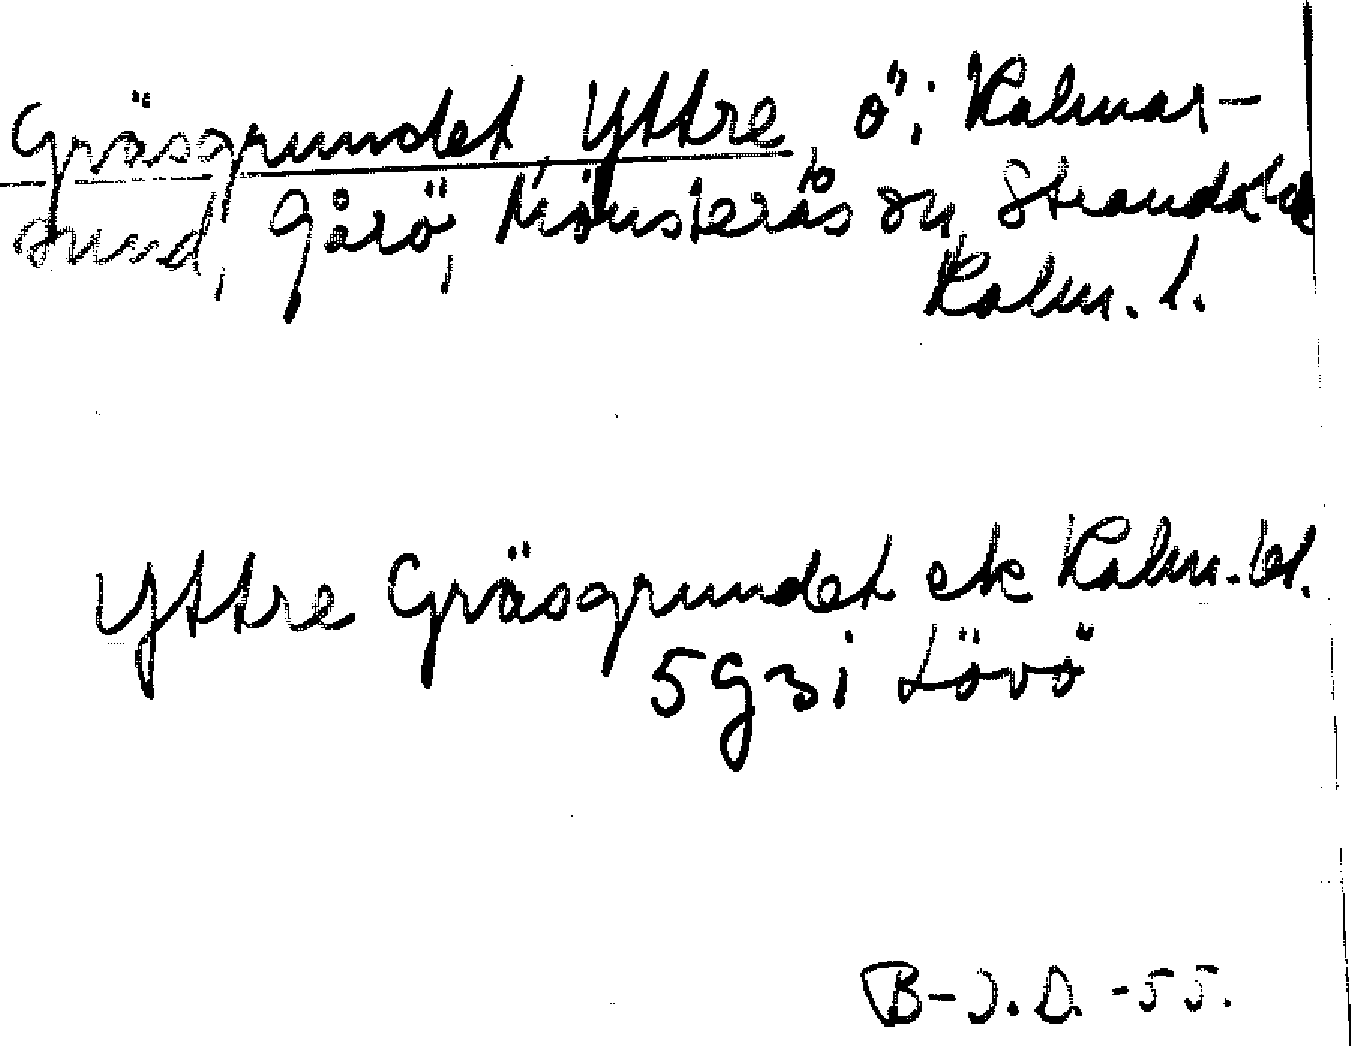 Gräsgrundet, Yttre, ö i Kalmar-
sund, Gårö, Mönsterås sn, Stranda hd
Kalm. l.
Yttre Gräsgrundet ek Kalm. bl.
5 g 3 i Lövö
B-J.D. -55.